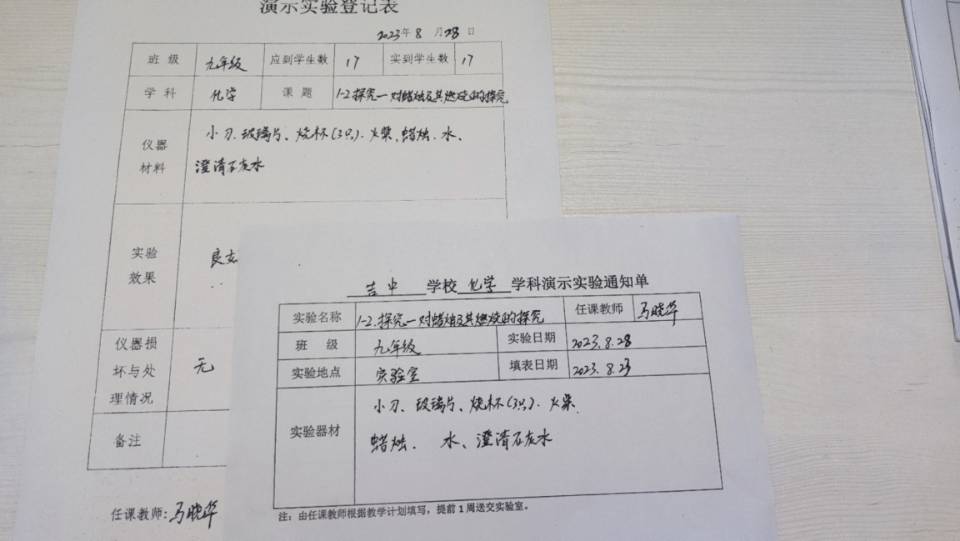 演示实验登记表
2023年8月28日
班 级 九年级 应到学生数 17 实到学生数 17
学 科 化学 课 题 1-2探究一对蜡烛及其燃烧的探究
仪器
材料
小刀、玻璃片、烧杯(3只)、火柴、蜡烛、水、
澄清石灰水
实验
效果
良
仪器损
坏与处
理情况
无
备注
任课教师:马晓华
吉中 学校 化学 学科演示实验通知单
实验名称 1-2.探究一对蜡烛及其燃烧的探究 任课教师 马晓华
班 级 九年级 实验日期 2023.8.28
实验地点 实验室 填表日期 2023.8.23
实验器材
小刀、玻璃片、烧杯(3只)、火柴、
蜡烛、 水、澄清石灰水
注:由任课教师根据教学计划填写,提前1周送交实验室。